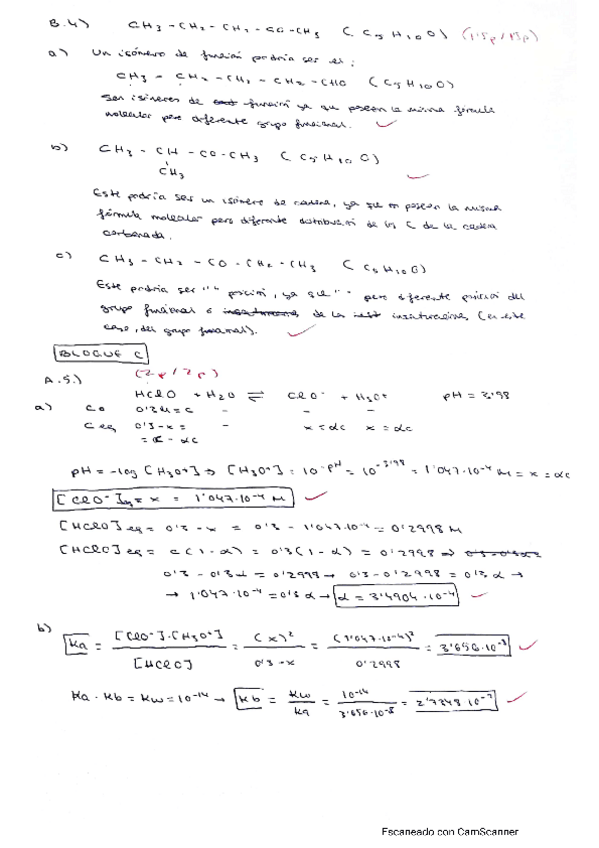 B.4) CH3-CH2-CH2-CO-CH3 (C5H10O) (1'5p/1'5p)
a) Un isómero de función podría ser el:
CH3-CH2-CH2-CH2-CHO (C5H10O)
Son isómeros de función ya que poseen la misma fórmula
molecular pero diferente grupo funcional.
b) CH3-CH-CO-CH3 (C5H10O)
CH3
Este podría ser un isómero de cadena, ya que poseen la misma
fórmula molecular pero diferente distribución de los C de la cadena
carbonada.
c) CH3-CH2-CO-CH2-CH3 (C5H10O)
Este podría ser " " posición, ya que " " pero diferente posición del
grupo funcional o de la insaturaciones (en este
caso, del grupo funcional).
BLOQUE C
A.5.) (2p/2p)
HClO + H2O ⇌ ClO⁻ + H3O⁺ pH = 3'98
a) Co 0'3M=c - - -
Ceq 0'3-x= - x=αc x=αc
=c-αc
pH = -log [H3O+] → [H3O+] = 10^-pH = 10^-3'98 = 1'047·10^-4 M = x = αc
[ClO⁻]eq = x = 1'047·10^-4 M
[HClO]eq = 0'3 - x = 0'3 - 1'047·10^-4 = 0'2998 M
[HClO]eq = c(1-α) = 0'3(1-α) = 0'2998 ⇒
0'3 - 0'3α = 0'2998 → 0'3 - 0'2998 = 0'3α →
→ 1'047·10^-4 = 0'3α → α = 3'4904·10^-4
b) Ka = [ClO⁻]·[H3O+] / [HClO] = (x)² / 0'3-x = (1'047·10^-4)² / 0'2998 = 3'656·10^-8
Ka · Kb = Kw = 10^-14 → Kb = Kw / Ka = 10^-14 / 3'656·10^-8 = 2'7348·10^-7
Escaneado con CamScanner